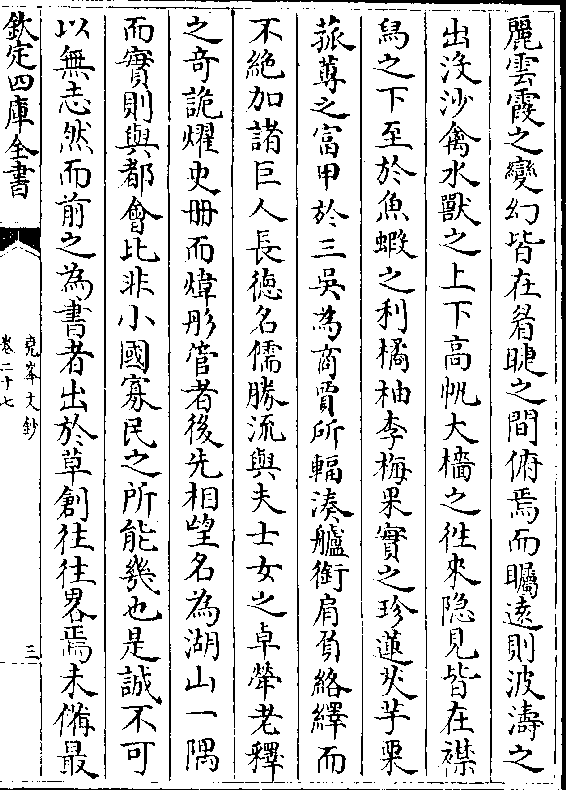 麗雲霞之變幻皆在眉睫之間俯焉而矚遠則波濤之
出没沙禽水獸之上下高帆大檣之徃來隐見皆在襟
舄之下至於魚蝦之利橘柚李梅果實之珍蓮芡芋栗
菰蓴之富甲於三吳為商賈所輻湊艫銜肩負絡繹而
不絶加諸巨人長徳名儒勝流與夫士女之卓犖老釋
之奇詭燿史冊而煒彤管者後先相望名為湖山一隅
而實則與都會比非小國寡民之所能幾也是誠不可
以無志然而前之為書者出於草創往往畧焉未備最
欽定四庫全書
堯峯文鈔
卷二十七
三